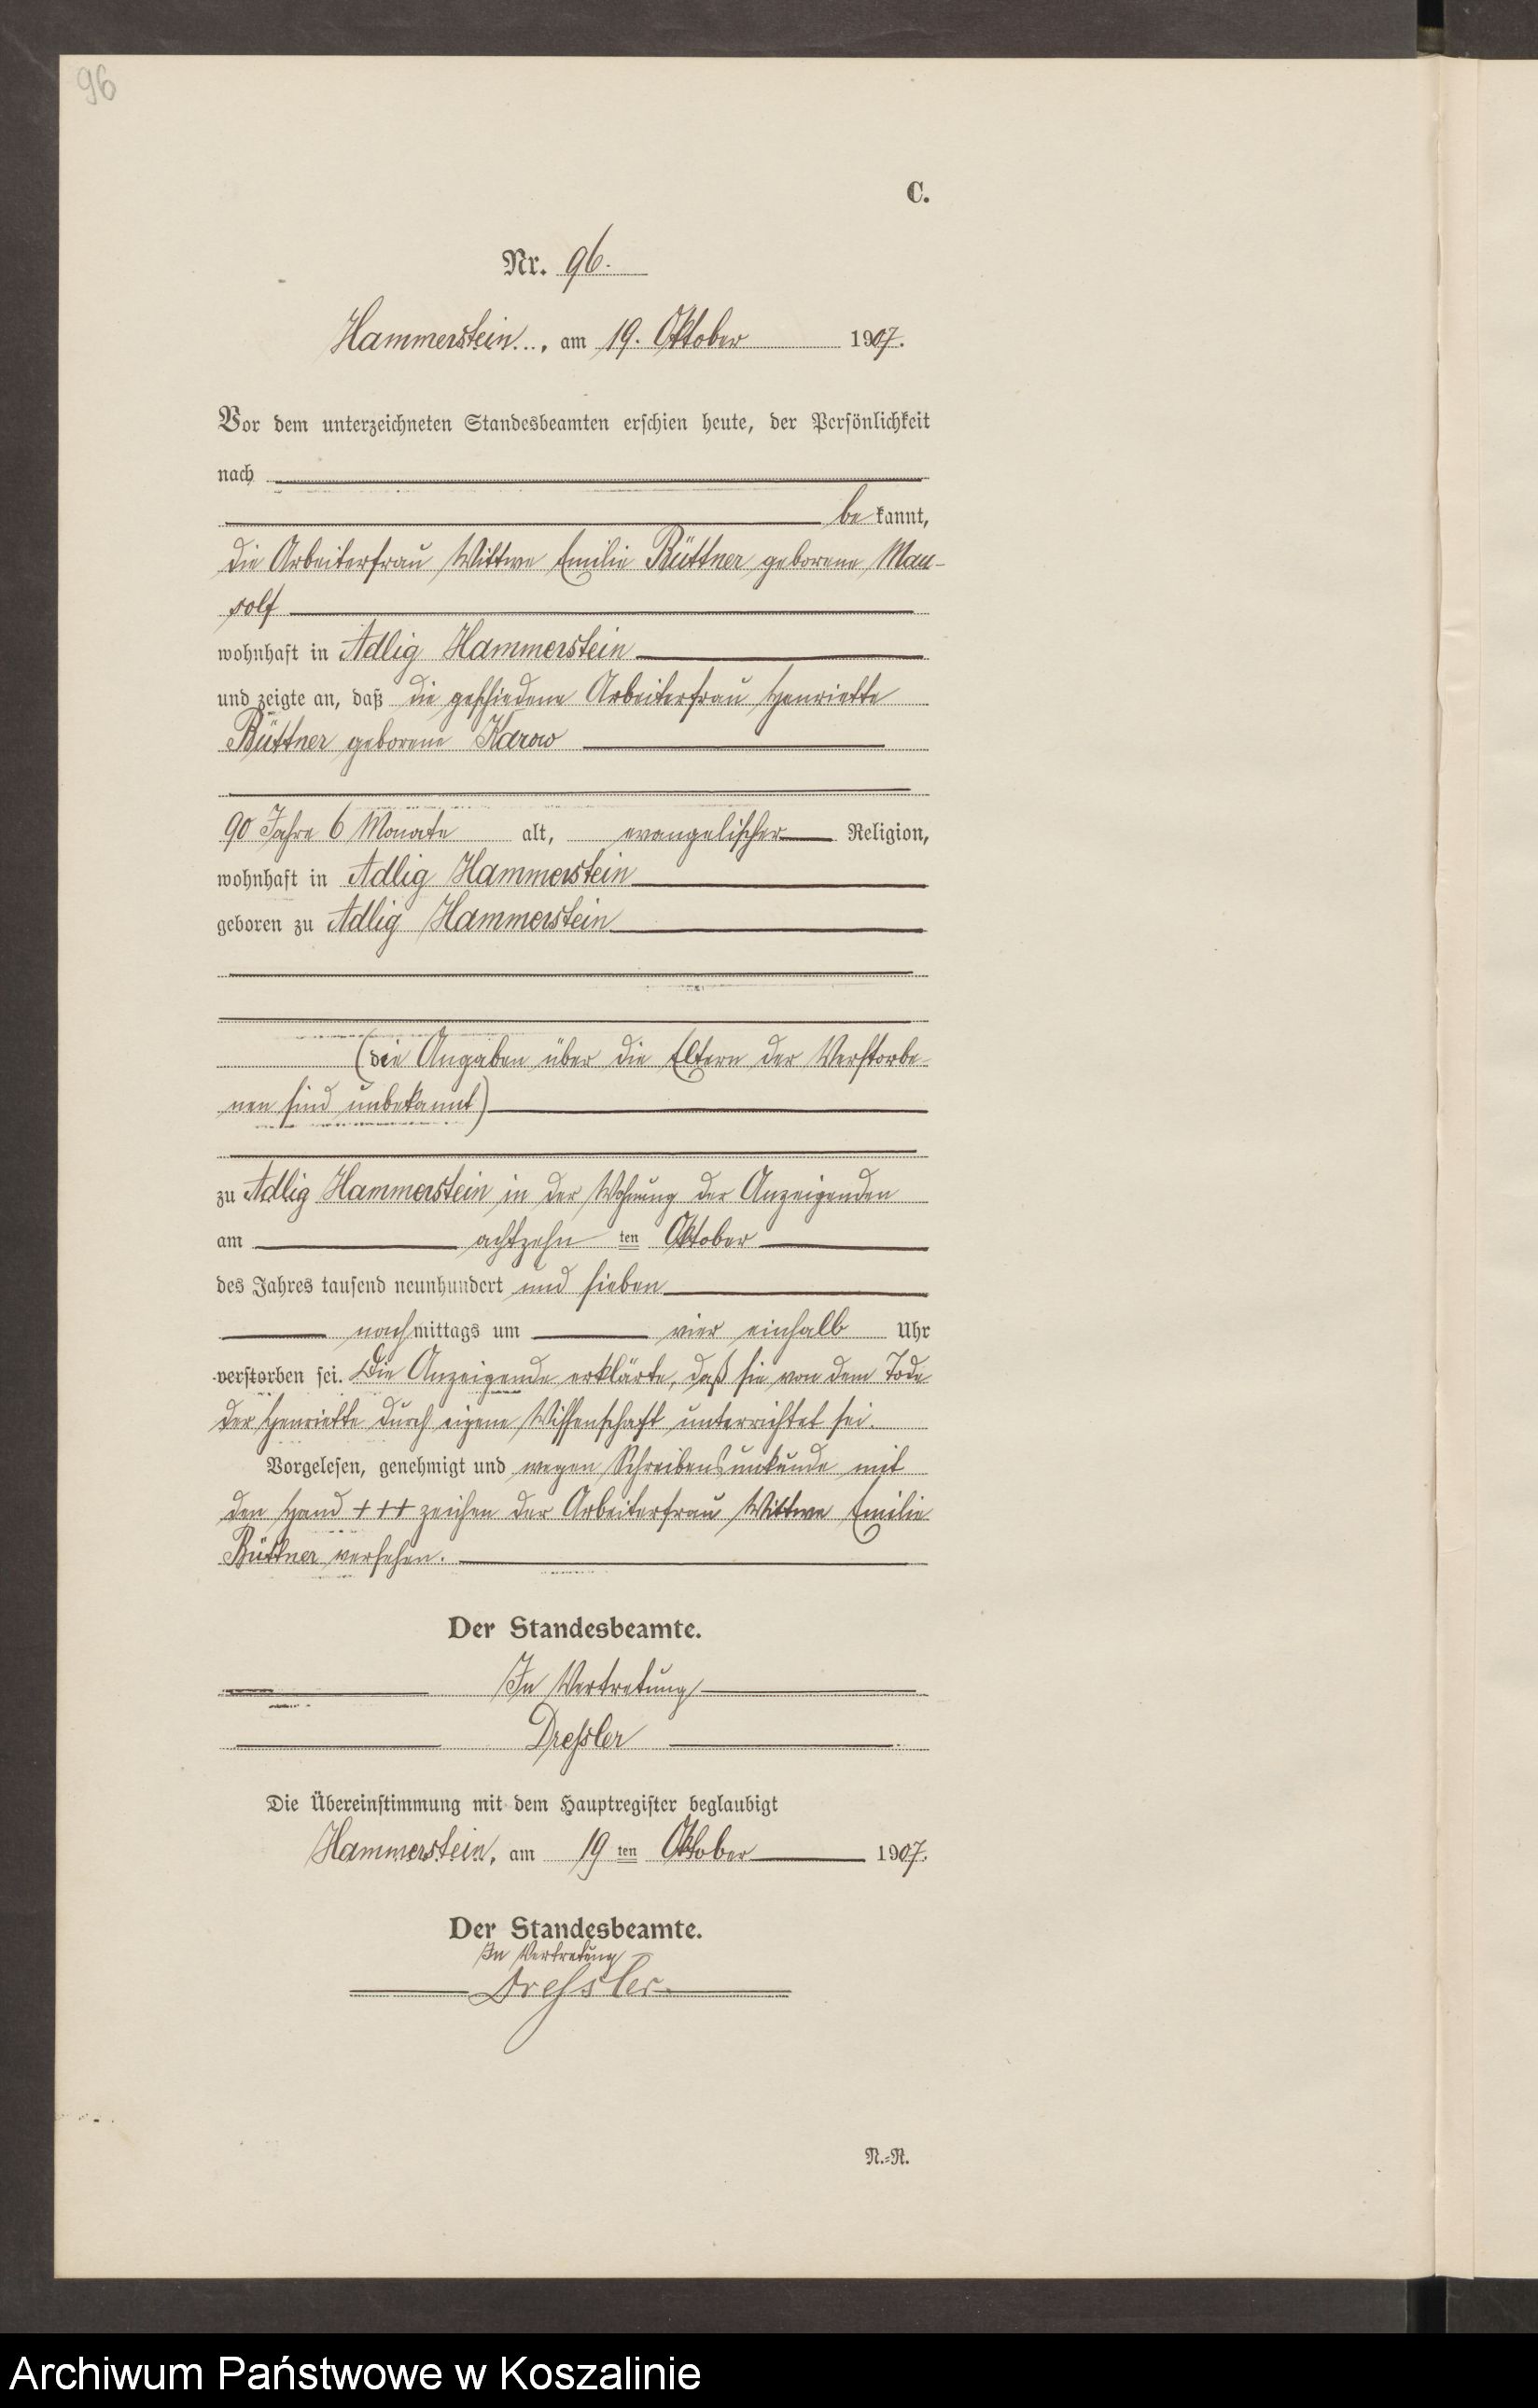 96
C.
Nr. 96.
Hammerstein..., am 19. Oktober 1907.
Vor dem unterzeichneten Standesbeamten erschien heute, der Persönlichkeit
nach
be kannt,
die Arbeiterfrau Wittwe Emilie Büttner geborene Man-
wohnhaft in Adlig Hammerstein
und zeigte an, daß die geschiedene Arbeiterfrau Henriette
Büttner geborene Karow
90 Jahre 6 Monate alt, evangelischer Religion,
wohnhaft in Adlig Hammerstein
geboren zu Adlig Hammerstein
(die Angaben über die Eltern der Verstorbe-
nen sind unbekannt)
zu Adlig Hammerstein in der Wohnung der Anzeigenden
am achtzehn ten Oktober
des Jahres tausend neunhundert und sieben
nachmittags um vier einhalb Uhr
verstorben sei. Die Anzeigende erklärte, daß sie von dem Tode
der Henriette durch eigene Wissenschaft unterrichtet sei.
Vorgelesen, genehmigt und wegen Schreibensunkunde mit
den Hand +++ zeichen der Arbeiterfrau Wittwe Emilie
Büttner versehen.
Der Standesbeamte.
In Vertretung
Dressler
Die Übereinstimmung mit dem Hauptregister beglaubigt
Hammerstein, am 19 ten Oktober 1907.
Der Standesbeamte.
In Vertretung
Dressler.
N.-R.
Archiwum Państwowe w Koszalinie